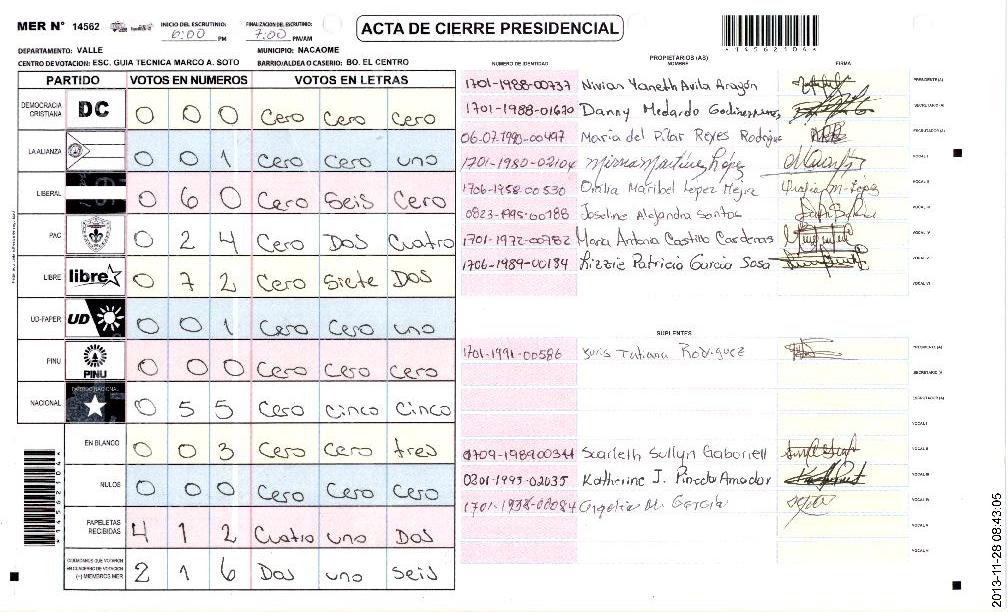 MER N° 14562
INICIO DEL ESCRUTINIO: 6:00 PM
FINALIZACION DEL ESCRUTINIO: 7:00 PM/AM
ACTA DE CIERRE PRESIDENCIAL
*14562104*
DEPARTAMENTO: VALLE
MUNICIPIO: NACAOME
CENTRO DE VOTACION: ESC. GUIA TECNICA MARCO A. SOTO
BARRIO/ALDEA O CASERIO: BO. EL CENTRO
PARTIDO VOTOS EN NUMEROS VOTOS EN LETRAS
DEMOCRACIA CRISTIANA DC 0 0 0 Cero Cero Cero
LA ALIANZA 0 0 1 Cero Cero uno
LIBERAL 0 6 0 Cero Seis Cero
PAC 0 2 4 Cero Dos Cuatro
LIBRE libre 0 7 2 Cero Siete Dos
UD-FAPER UD 0 0 1 Cero Cero uno
PINU PINU 0 0 0 Cero Cero Cero
NACIONAL PARTIDO NACIONAL 0 5 5 Cero cinco Cinco
EN BLANCO 0 0 3 Cero Cero tres
NULOS 0 0 0 Cero Cero Cero
PAPELETAS RECIBIDAS 4 1 2 Cuatro uno Dos
CIUDADANOS QUE VOTARON EN CUADERNO DE VOTACION (+) MIEMBROS MER 2 1 6 Dos uno Seis
PROPIETARIOS (AS)
NUMERO DE IDENTIDAD NOMBRE FIRMA
1701-1988-00737 Nivian Yaneth Avila Aragón PRESIDENTE(A)
1701-1988-01670 Danny Medardo SECRETARIO (A)
06-07-1990-00497 Maria del Pilar Reyes Rodrigue ESCRUTADOR (A)
1701-1980-02104 Mirna Martinez López VOCAL I
1706-1958-00530 Maribel Lopez Mejia VOCAL II
0823-1995-00188 Joseline Alejandra Santos VOCAL III
1701-1972-00782 Maria Antonia Castillo Cardenas VOCAL IV
1706-1989-00184 Lizzie Patricia Garcia Sosa VOCAL V
VOCAL VI
SUPLENTES
1701-1991-00586 Yuris Tatiana Rodriguez PRESIDENTE (A)
SECRETARIO (A)
ESCRUTADOR (A)
VOCAL I
0709-1989-00344 Scarleth Sullyn Gabriell VOCAL II
0801-1993-02035 Katherine J. Pineda Amador VOCAL III
1701-1938-00084 Angelica M. García VOCAL IV
VOCAL V
VOCAL VI
*14562104*
2013-11-28 08:43:05